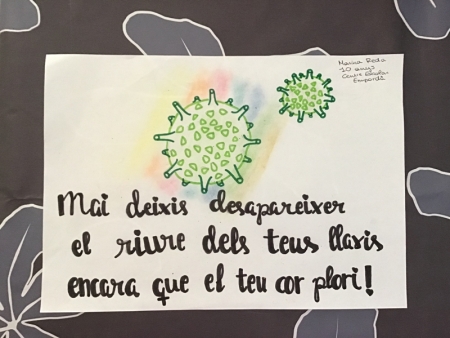 Marina Roda
10 anys
Centre Escolar
Empordà
Mai deixis desapareixer
el riure dels teus llavis
encara que el teu cor plori!